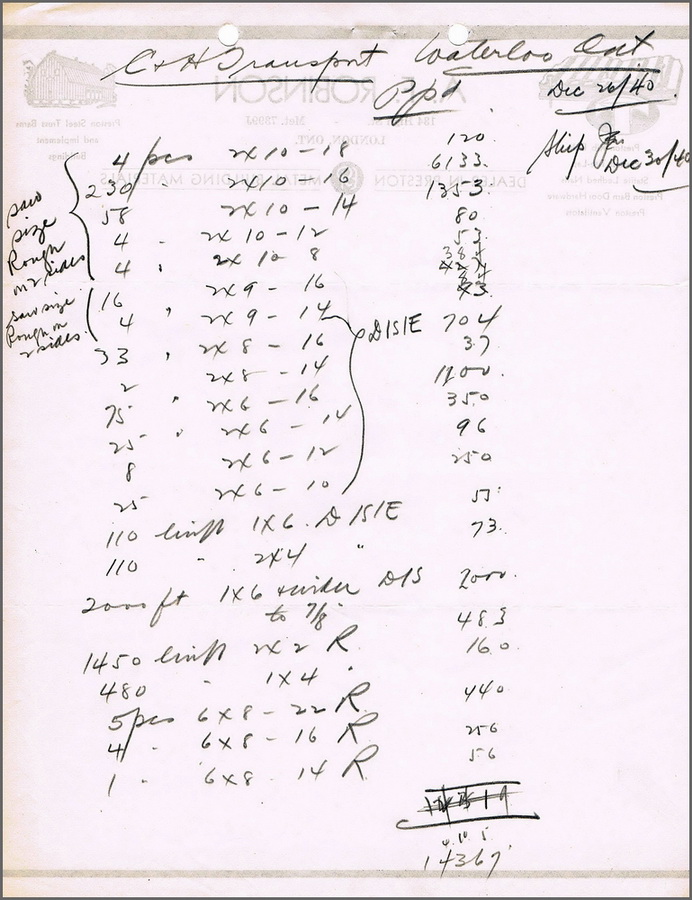 C & H Transport Waterloo Ont
Ppd
Dec 26/40
Ship
Dec 30/40
4 pcs 2x10-18 120
230 " 2x10-16 6133.
58 2x10-14 1353.
4 " 2x10-12 80
4 " 2x10 8 53
saw size Rough on 2 sides
16 2x9-16 384
4 " 2x9-14 84
saw size Rough on 2 sides.
33 " 2x8-16 704
2 2x8-14 37
75 " 2x6-16 1200.
25 " 2x6-14 350
8 2x6-12 96
25 2x6-10 250
D1S1E
110 linft 1x6 D1S1E 55
110 " 2x4 " 73.
2000 ft 1x6 & wider D1S 2000.
to 7/8
1450 linft 2x2 R 483
480 " 1x4 " 160
5 pcs 6x8-22 R 440
4 " 6x8-16 R 256
1 " 6x8-14 R 56
14367
A. E. ROBINSON
LONDON, ONT.
DEALER IN PRESTON METAL BUILDING MATERIALS
Preston Steel Truss Barns
and Implement
Buildings